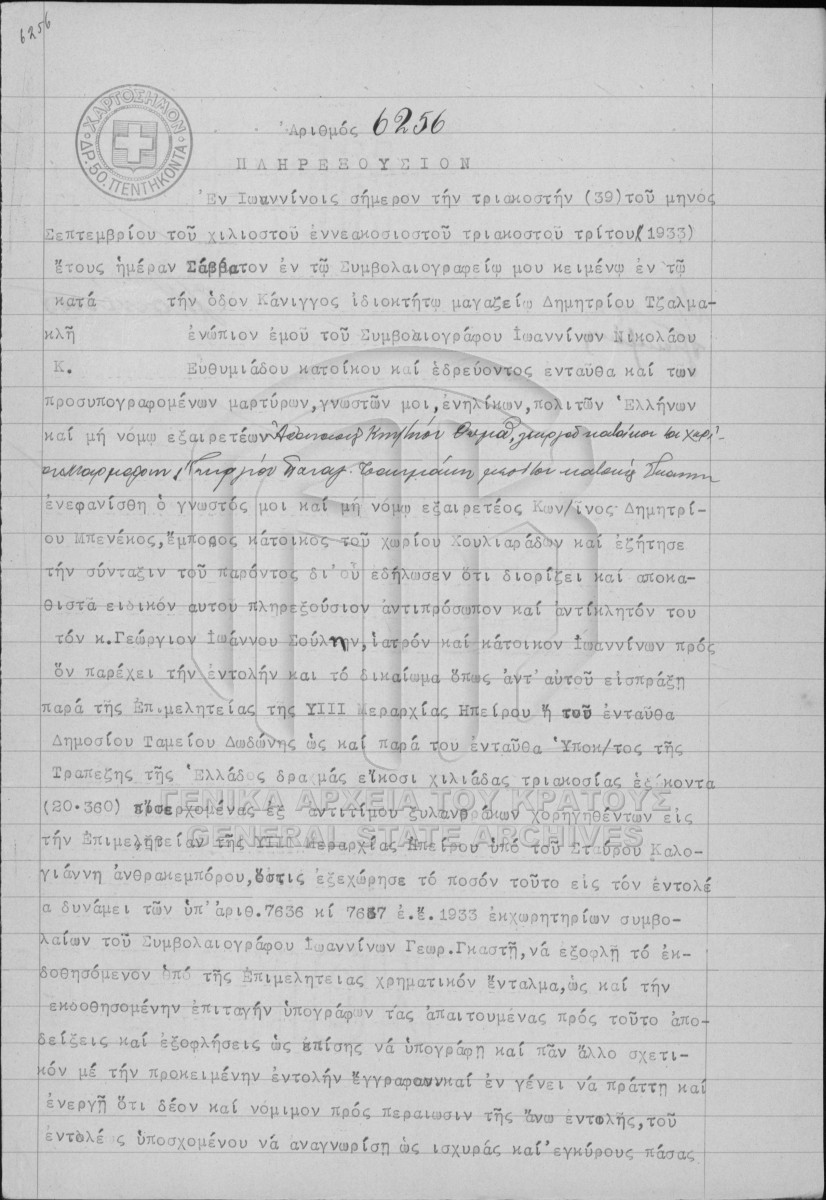 6256
ΧΑΡΤΟΣΗΜΟΝ
ΔΡ. 50. ΠΕΝΤΗΚΟΝΤΑ
Ἀριθμός 6256
ΠΛΗΡΕΞΟΥΣΙΟΝ
Ἐν Ἰωαννίνοις σήμερον τήν τριακοστήν (39) τοῦ μηνός
Σεπτεμβρίου τοῦ χιλιοστοῦ ἐννεακοσιοστοῦ τριακοστοῦ τρίτου(1933)
ἔτους ἡμέραν Σάββατον ἐν τῷ Συμβολαιογραφείῳ μου κειμένῳ ἐν τῷ
κατά τήν ὁδον Κάνιγγος ἰδιοκτήτῳ μαγαζείῳ Δημητρίου Τζαλμα-
κλῆ ἐνώπιον ἐμοῦ τοῦ Συμβολαιογράφου Ἰωαννίνων Νικολάου
Κ. Ευθυμιάδου κατοίκου καί ἑδρεύοντος ενταῦθα καί των
προσυπογραφομένων μαρτύρων,γνωστῶν μοι,ἐνηλίκων,πολιτῶν Ἑλλήνων
καί μή νόμῳ εξαιρετέων Θωμᾶ, γεωργοῦ κατοίκου
Γεωργίου
ἐνεφανίσθη ὁ γνωστός μοι καί μή νόμῳ εξαιρετέος Κων/ῖνος Δημητρί-
ου Μπενέκος,ἔμπορος κάτοικος τοῦ χωρίου Χουλιαράδων καί εζήτησε
τήν σύνταξιν τοῦ παρόντος δι'οὗ εδήλωσεν ὅτι διορίζει καί αποκα-
θιστᾶ ειδικόν αυτοῦ πληρεξούσιον ἀντιπρόσωπον καί ἀντίκλητόν του
τόν κ.Γεώργιον Ἰωάννου Σούλην,ἰατρόν καί κάτοικον Ἰωαννίνων πρός
ὅν παρέχει τήν ἐντολήν και τό δικαίωμα ὅπως ἀντ'αὐτοῦ εἰσπράξῃ
παρά τῆς Ἐπιμελητείας της VIII Μεραρχίας Ηπείρου ἤ τοῦ ἐνταῦθα
Δημοσίου Ταμείου Δωδώνης ὡς καί παρά του ἐνταῦθα Ὑποκ/τος τῆς
Τραπεζης τῆς Ἑλλάδος δραχμάς εἴκοσι χιλιάδας τριακοσίας ἑξήκοντα
(20.360) προερχομένας ἐξ ἀντιτίμου ξυλανθράκων χορηγηθέντων εἰς
τήν Ἐπιμελητείαν τῆς VIII Μεραρχίας Ηπείρου ὑπό τοῦ Σταύρου Καλο-
γιάννη ἀνθρακεμπόρου,ὅστις ἐξεχώρησε τό ποσόν τοῦτο εἰς τόν ἐντολέ
α δυνάμει τῶν ὑπ'ἀριθ.7636 κί 7637 ἐ.ἔ.1933 ἐκχωρητηρίων συμβο-
λαίων τοῦ Συμβολαιογράφου Ἰωαννίνων Γεωρ.Γκαστῆ,νά ἐξοφλῇ τό ἐκ-
δοθησόμενον ὑπό τῆς Ἐπιμελητειας χρηματικόν ἔνταλμα,ὡς καί τήν
εκδοθησομένην ἐπιταγήν ὑπογράφων τάς ἀπαιτουμένας πρός τοῦτο ἀπο-
δείξεις καί ἐξοφλήσεις ὡς ἐπίσης νά ὑπογράφῃ καί πᾶν ἄλλο σχετι-
κόν μέ τήν προκειμένην ἐντολήν ἔγγραφον καί ἐν γένει νά πράττῃ καί
ἐνεργῇ ὅτι δέον καί νόμιμον πρός περαιωσιν τῆς ἄνω ἐντολῆς,τοῦ
ἐντολέως ὑποσχομένου νά ἀναγνωρίσῃ ὡς ισχυράς καί εγκύρους πάσας
ΓΕΝΙΚΑ ΑΡΧΕΙΑ ΤΟΥ ΚΡΑΤΟΥΣ
GENERAL STATE ARCHIVES